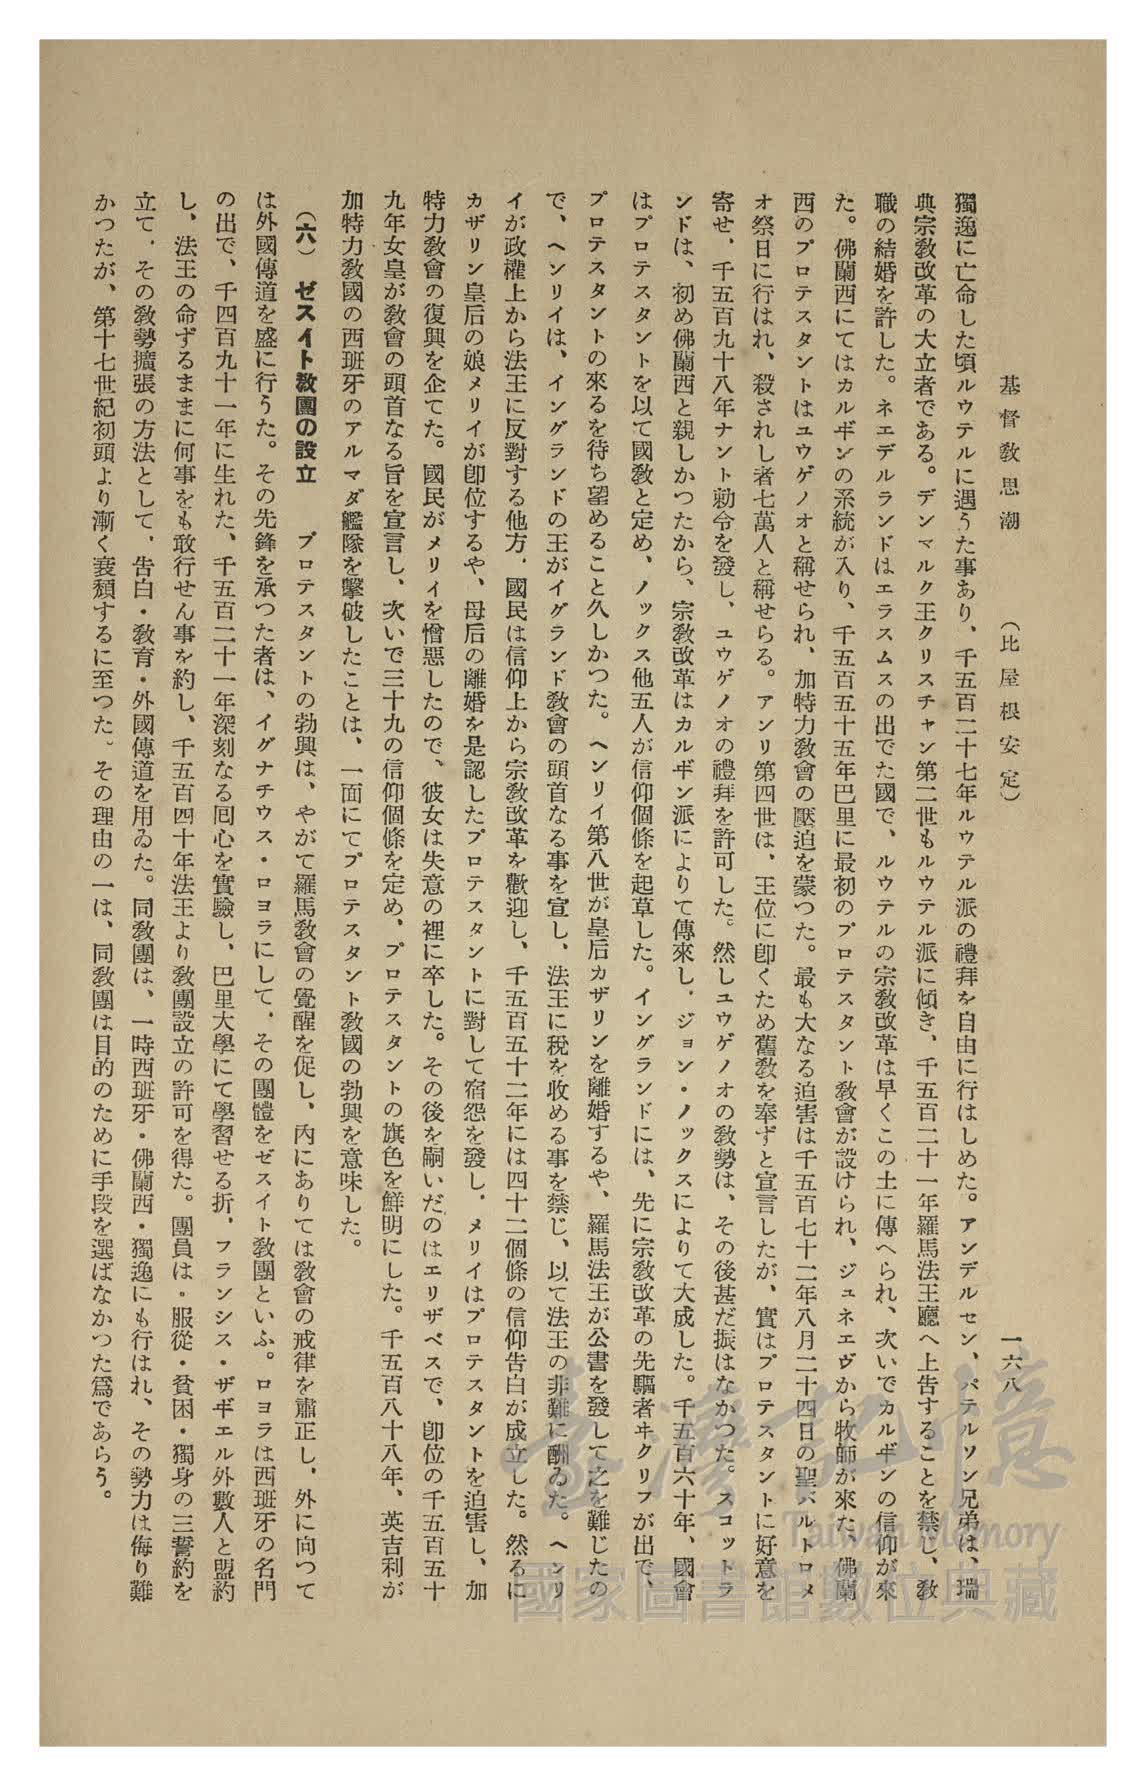 基督敎思潮　（比屋根安定）　一六八
獨逸に亡命した頃ルウテルに遇うた事あり、千五百二十七年ルウテル派の禮拜を自由に行はしめた。アンデルセン、パテルソン兄弟は、瑞
典宗敎改革の大立者である。デンマルク王クリスチャン第二世もルウテル派に傾き、千五百二十一年羅馬法王廳へ上告することを禁じ、敎
職の結婚を許した。ネエデルランドはエラスムスの出でた國で、ルウテルの宗敎改革は早くこの土に傳へられ、次いでカルヸンの信仰が來
た。佛蘭西にてはカルヸンの系統が入り、千五百五十五年巴里に最初のプロテスタント敎會が設けられ、ジュネエヴから牧師が來た、佛蘭
西のプロテスタントはユウゲノオと稱せられ、加特力敎會の壓迫を蒙つた。最も大なる迫害は千五百七十二年八月二十四日の聖バルトロメ
オ祭日に行はれ、殺されし者七萬人と稱せらる。アンリ第四世は、王位に卽くため舊敎を奉ずと宣言したが、實はプロテスタントに好意を
寄せ、千五百九十八年ナント勅令を發し、ユウゲノオの禮拜を許可した。然しユウゲノオの敎勢は、その後甚だ振はなかつた。スコットラ
ンドは、初め佛蘭西と親しかつたから、宗敎改革はカルヸン派によりて傳來し、ジョン・ノックスによりて大成した。千五百六十年、國會
はプロテスタントを以て國敎と定め、ノックス他五人が信仰個條を起草した。イングランドには、先に宗敎改革の先驅者ヰクリフが出で、
プロテスタントの來るを待ち望めること久しかつた。ヘンリイ第八世が皇后カザリンを離婚するや、羅馬法王が公書を發して之を難じたの
で、ヘンリイは、イングランドの王がイグランド敎會の頭首なる事を宣し、法王に稅を收める事を禁じ、以て法王の非難に酬ゐた。ヘンリ
イが政權上から法王に反對する他方、國民は信仰上から宗敎改革を歡迎し、千五百五十二年には四十二個條の信仰告白が成立した。然るに
カザリン皇后の娘メリイが卽位するや、母后の離婚を是認したプロテスタントに對して宿怨を發し、メリイはプロテスタントを迫害し、加
特力敎會の復興を企てた。國民がメリイを憎惡したので、彼女は失意の裡に卒した。その後を嗣いだのはエリザベスで、卽位の千五百五十
九年女皇が敎會の頭首なる旨を宣言し、次いで三十九の信仰個條を定め、プロテスタントの旗色を鮮明にした。千五百八十八年、英吉利が
加特力敎國の西班牙のアルマダ艦隊を擊破したことは、一面にてプロテスタント敎國の勃興を意味した。
（六）　ゼスイト敎團の設立　プロテスタントの勃興は、やがて羅馬敎會の覺醒を促し、內にありては敎會の戒律を肅正し、外に向つて
は外國傳道を盛に行うた。その先鋒を承つた者は、イグナチウス・ロヨラにして、その團體をゼスイト敎團といふ。ロヨラは西班牙の名門
の出で、千四百九十一年に生れた、千五百二十一年深刻なる囘心を實驗し、巴里大學にて學習せる折、フランシス・ザヸエル外數人と盟約
し、法王の命ずるままに何事をも敢行せん事を約し、千五百四十年法王より敎團設立の許可を得た。團員は。服從・貧困・獨身の三誓約を
立て、その敎勢擴張の方法として、告白・敎育・外國傳道を用ゐた。同敎團は、一時西班牙・佛蘭西・獨逸にも行はれ、その勢力は侮り難
かつたが、第十七世紀初頭より漸く衰頽するに至つた。その理由の一は、同敎團は目的のために手段を選ばなかつた爲であらう。
臺灣記憶
Taiwan Memory
國家圖書館數位典藏